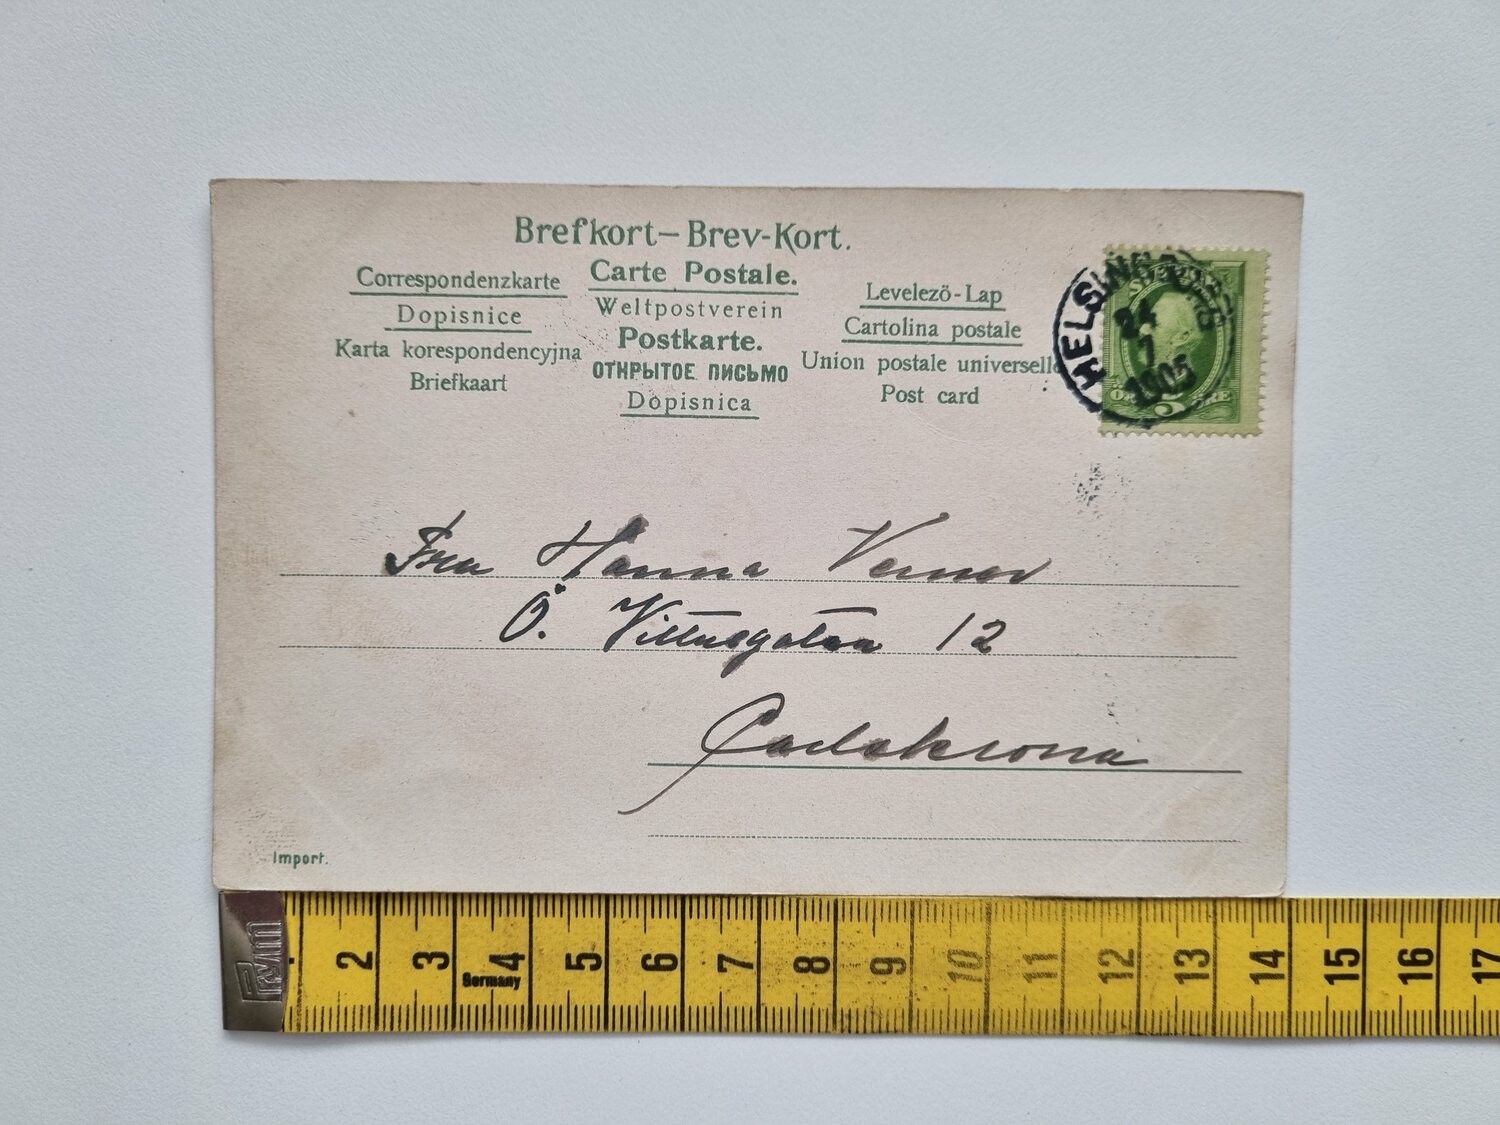 Brefkort – Brev-Kort.
Correspondenzkarte
Dopisnice
Karta korespondencyjna
Briefkaart
Carte Postale.
Weltpostverein
Postkarte.
ОТКРЫТОЕ ПИСЬМО
Dopisnica
Levelezö-Lap
Cartolina postale
Union postale universelle
Post card
HELSINGBORG
24
7
1905
5
ÖRE
Fru Hanna Verner
Ö. Vittusgatan 12
Carlskrona
Import.
Prym
2 3 4 5 6 7 8 9 10 11 12 13 14 15 16 17
Germany